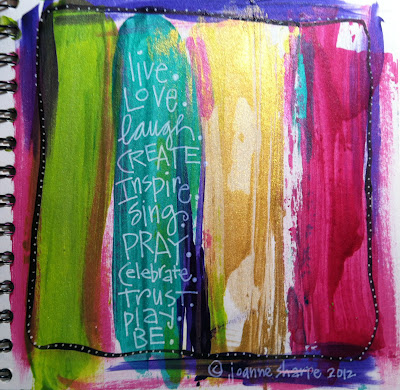 live.
LOVE.
laugh.
CREATE.
Inspire.
Sing.
PRAY.
Celebrate.
Trust.
play.
BE.
© joanne sharpe 2012